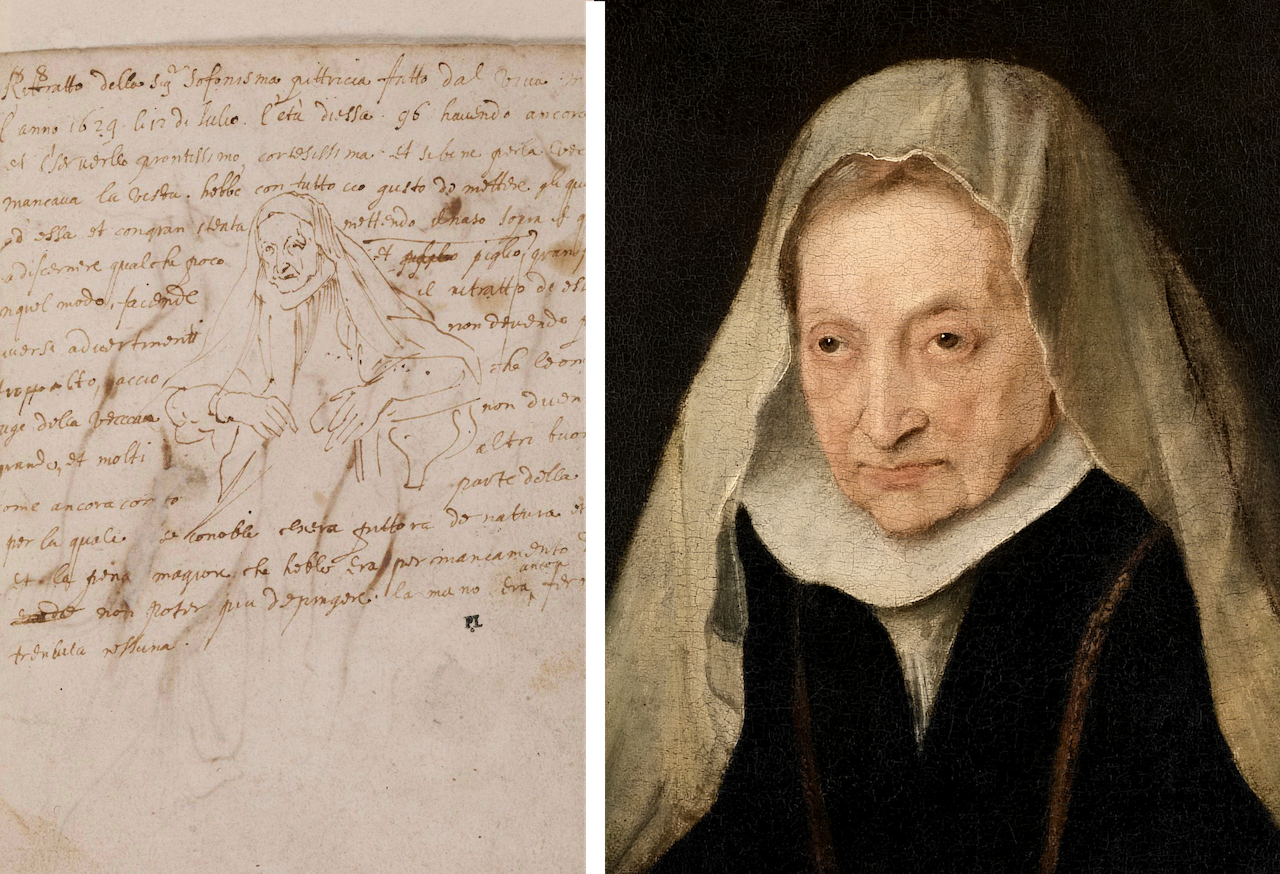 Rittratto della Sigra Sofonisma pittricia fatto dal vivo
l'anno 1629 li 12 di Julio. l'età di essa 96 havendo ancora
et il servello prontissimo, cortesissima et sebene per la
mancava la vista. hebbe con tutto cio gusto de mettere gli
ad essa et con gran stenta mettendo il naso sopra il
a discernere qualche poco et piglio gran
in quel modo, facendo il ritratto di es
diversi advertimenti non devendo
troppo alto, accio che le om
rughe della vecciaia non dive
grande, et molti altri buon
come ancora con to parte della
per la quale se conobbe chera pittora de natura et
et la pena magiore che hebbe era per mancamento
non poter piu depingere. la mano era ancora fer
trembula nessuna.
PL